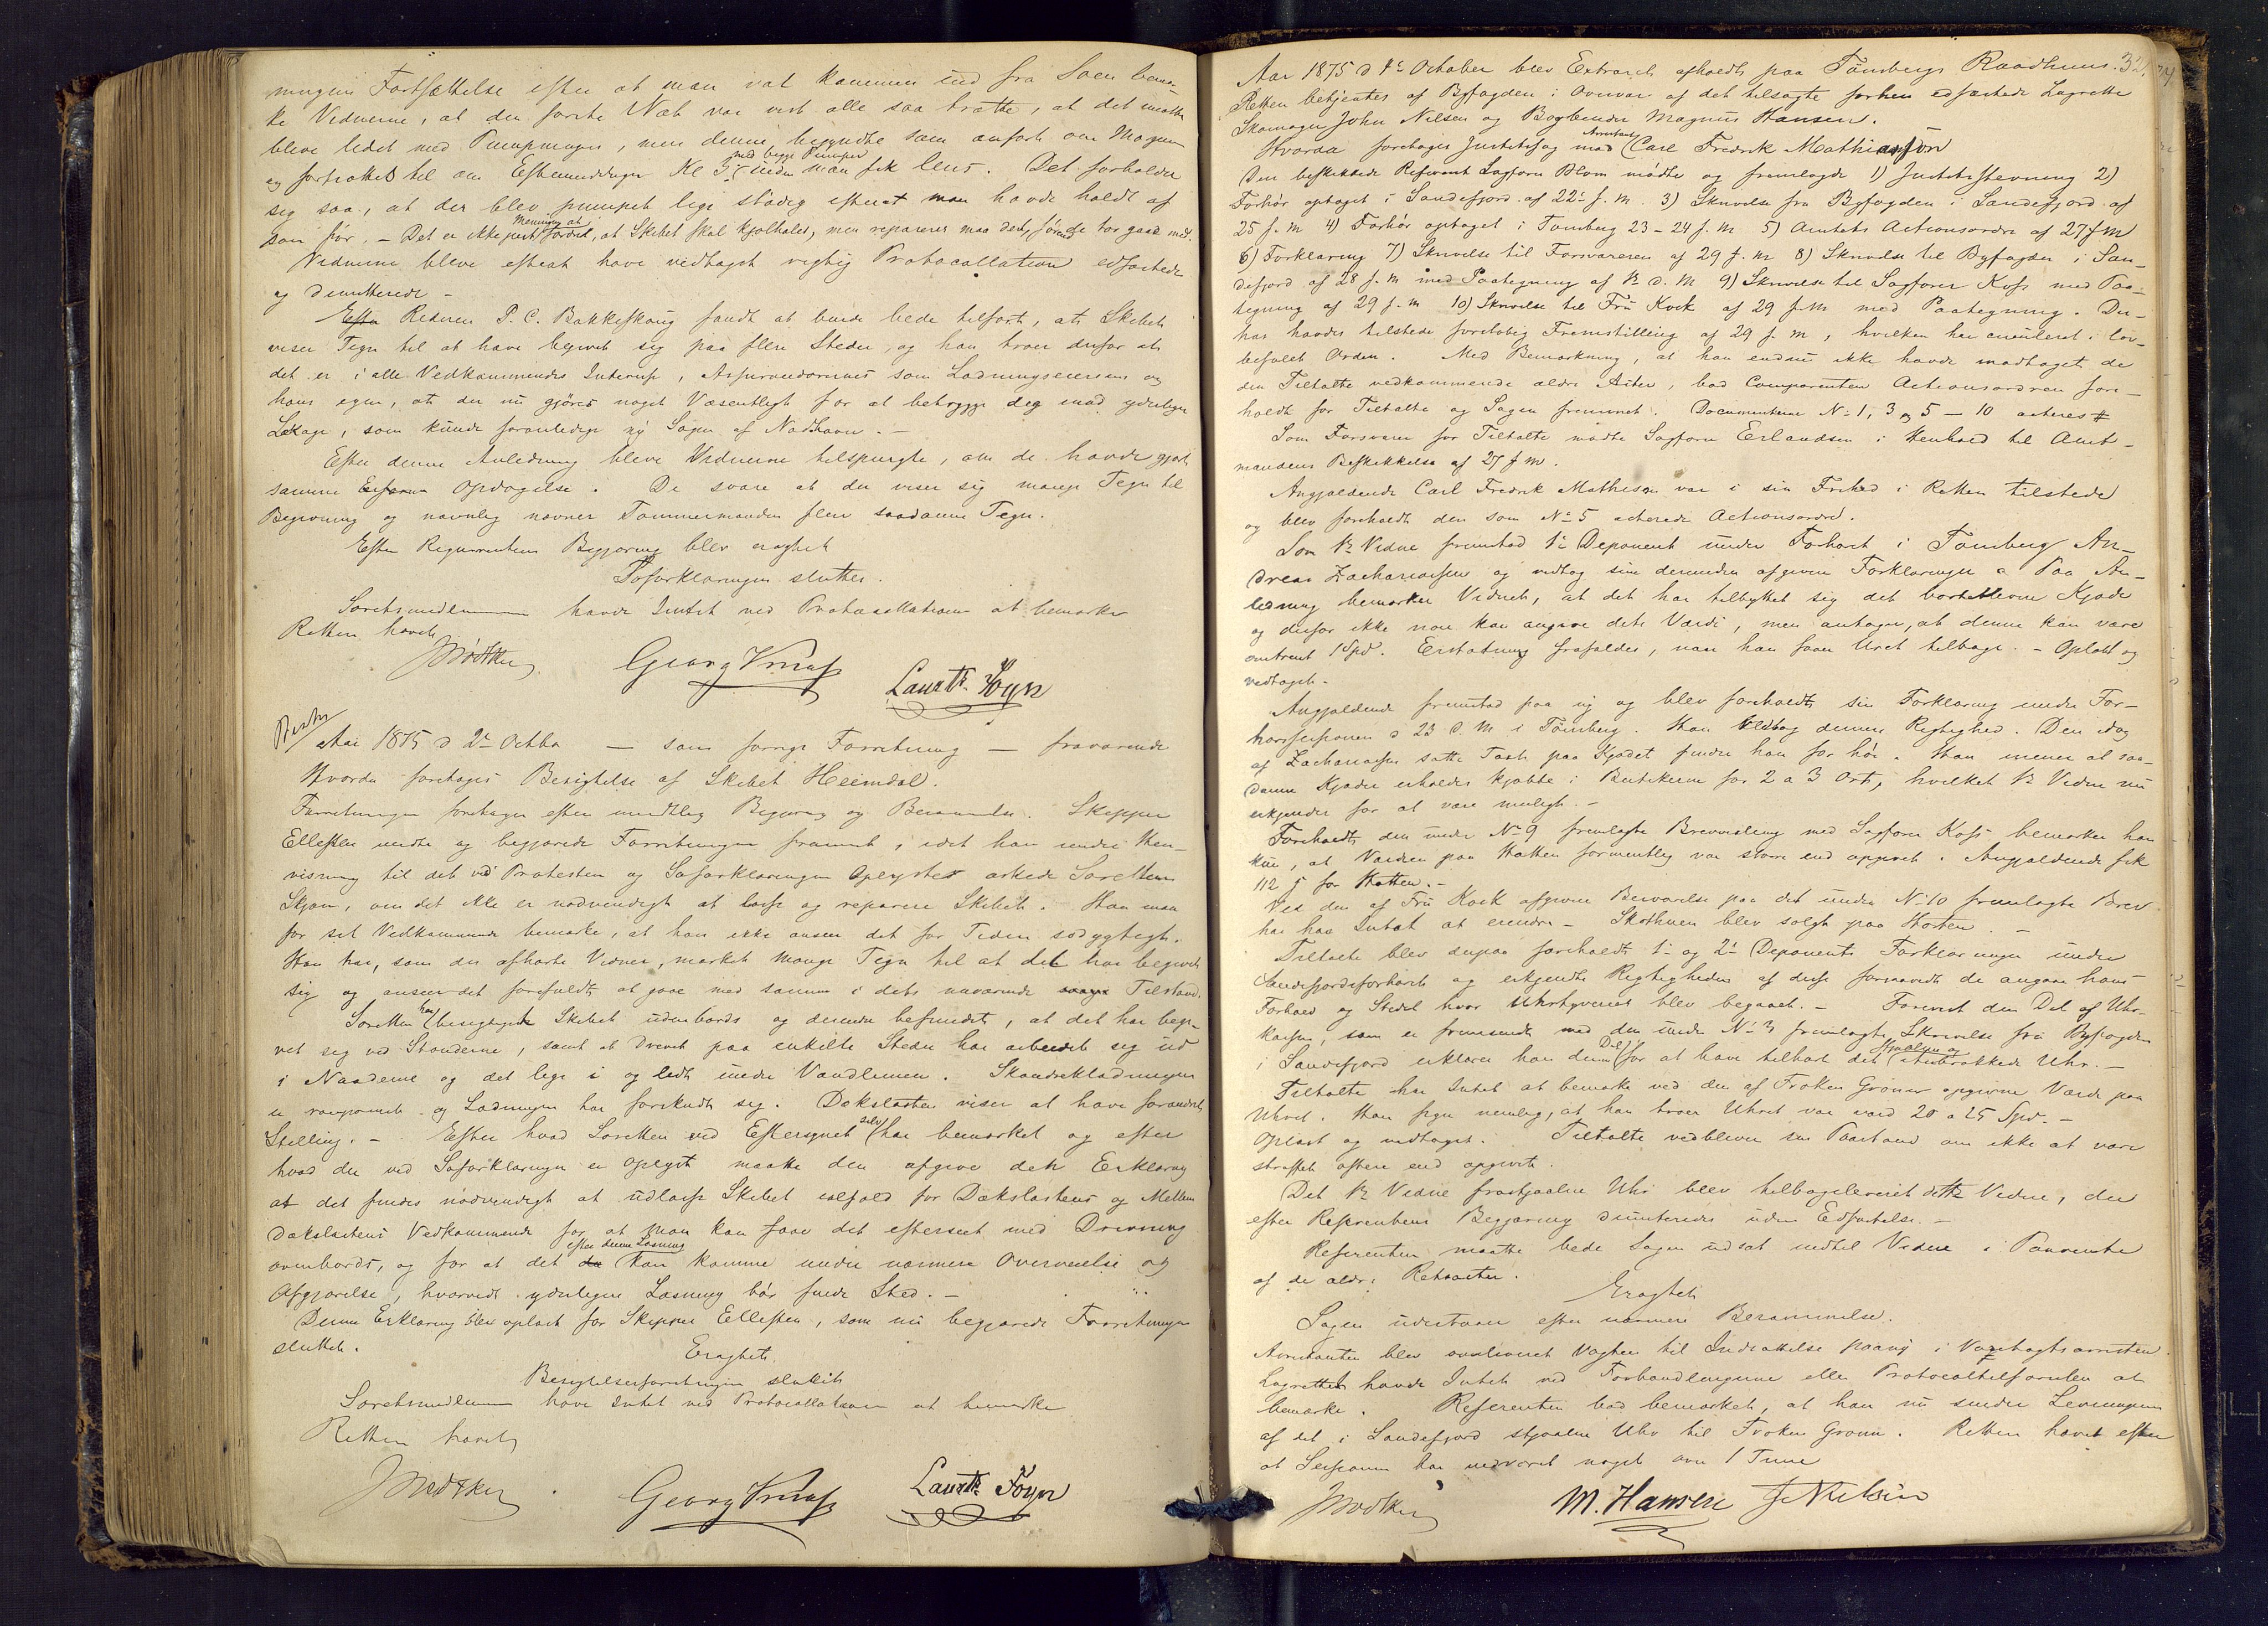 mingens Fortsættelse efter at man vat kommen ind fra Søen bemær-
ke Vidnerne, at den første Nat var vist alle saa trætte, at det maatte
bleve ledet med Pumpningen, men denne begyndte som anført om Morgen
og fortsattes til om Eftermiddagen Kl 3 med begge Pumper inden man fik lens. Det forholder
sig saa, at der blev pumpet lige stadig efterat man havde holdt af
som før. – Det er ikke just Mening at fordre, at Skibet skal kjølhales, men repareres maa det, førend de tør gaae med.
Vidnerne bleve efterat have vedtaget rigtig Protocollation edfæstede
og dimitterede –
Rederen P. C. Bakkeskoug fandt at burde bede tilført, at Skibet
viser Tegn til at have begivet sig paa flere Steder, og han troer derfor at
det er i alle Vedkommendes Interesse, Assurandørernes som Ladningseierens og
hans egen, at der nu gjøres noget Væsentligt for at betrygge sig mod yderligere
Lekage, som kunde foranledige ny Søgen af Nødhavn. –
Efter denne Anledning bleve Vidnerne tilspurgte, om de havde gjort
samme Opdagelse. De svare at der viser sig mange Tegn til
Begivning og navnlig nævner Tømmermanden flere saadanne Tegn.
Efter Reqvirentens Begjæring blev eragtet
Søforklaringen sluttes.
Søretsmedlemmerne havde Intet ved Protocollationen at bemærke
Retten hævet
JBødtker Georg Kruse
Lauritz Foyn
Aar 1875 d 2den Octbr — som forrige Forretning — fraværende
Hvorda foretoges Besigtelse af Skibet Heimdal.
Forretningen foretages efter mundtlig Begjæring og Berammelse. Skipper
Ellefsen mødte og begjærede Forretningen fremmet, idet han under Hen-
visning til det ved Protesten og Søforklaringen Oplyste æskede Sørettens
Skjøn, om det ikke er nødvendigt at losse og reparere Skibet. Han maa
for sit Vedkommende bemærke, at han ikke anseer det for Tiden sødygtigt.
Han har, som de afhørte Vidner, mærket mange Tegn til at det har begivet
sig og anseer det farefuldt at gaae med samme i dets nuværende Tilstand.
Søretten har besigtiget Skibet udenbords og derunder befundet, at det har begi-
vet sig ved Stønderne, samt at Drevet paa enkelte Steder har arbeidet sig ud
i Naaderne og det lige i og ledt under Vandlinien. Skandseklædningen
er ramponeret og Ladningen har forskudt sig. Dækslasten viser at have forandret
Stilling. – Efter hvad Søretten ved Eftersynet selv har bemærket og efter
hvad der ved Søforklaringen er oplyst maatte den afgive den Erklæring
at det findes nødvendigt at udlosse Skibet ialfald for Dækslastens og Mellem-
dækslastens Vedkommende for at man kan faae det efterseet med Drivning
ovenbords, og for at det efter denne Losning kan komme under nærmere Overveielse og
Afgjørelse, hvorvidt yderligere Losning bør finde Sted. –
Denne Erklæring blev oplæst for Skipper Ellefsen, som nu begjærede Forretningen
sluttet.
Eragtet
Besigtelsesforretningen sluttet
Søretsmedlemmerne have Intet ved Protocollationen at bemærke
Retten hævet
JBødtker Georg Kruse Lauritz Foyn
Aar 1875 d 4de October blev Extraret afholdt paa Tønsbergs Raadhuus. 321
Retten betjentes af Byfogden i Overvær af det tilsagte forhen edfæstede Lagrette
Skomager John Nilsen og Bogbinder Magnus Hansen.
Hvorda foretoges Justitssag mod Arrestant Carl Fredrik Mathiassøn
Den beskikkede Referent Sagfører Blom mødte og fremlagde 1) Justitsstevning 2)
Forhør optaget i Sandefjord af 22de f. M. 3) Skrivelse fra Byfogden i Sandefjord af
25 f. M 4) Forhør optaget i Tønsberg 23–24 f. M 5) Amtets Actionsordre af 27 f M
6) Forklaring 7) Skrivelse til Forsvareren af 29 f. M 8) Skrivelse til Byfogden i San-
defjord af 28 f. M med Paategning af 1ste d. M 9) Skrivelse til Sagfører Koss med Paa-
tegning af 29 f. M 10) Skrivelse til Fru Kock af 29 f M med Paategning. Der-
hos havdes tilstede foreløbig Fremstilling af 29 f. M, hvilken har circuleret i lov-
befalet Orden. Med Bemærkning, at han endnu ikke havde modtaget de
den Tiltalte vedkommende ældre Acter, bad Comparenten Actionsordren fore-
holdt for Tiltalte og Sagen fremmet. Documenterne No 1, 3 og 5 – 10 acteres #
Som Forsvarer for Tiltalte mødte Sagfører Erlandsen i Henhold til Amt-
mandens Beskikkelse af 27 f M.
Angjældende Carl Fredrik Mathisen var i sin Frihed i Retten tilstede
og blev foreholdt den som No 5 acterede Actionsordre.
Som 1ste Vidne fremstod 1ste Deponent under Forhøret i Tønsberg An-
dreas Zachariassen og vedtog sine derunder afgivne Forklaringer. Paa An-
ledning bemærker Vidnet, at det har tilbyttet sig det bortstjaalne Kjæde
og derfor ikke nøie kan angive dets Værdi, men antager, at denne kan være
omtrent 1 Spd. Erstatning frafaldes, naar han faaer Uret tilbage. – Oplæst og
vedtaget. –
Angjældende fremstod paa ny og blev foreholdt sin Forklaring under For-
hørssessionen d 23 d. M i Tønsberg. Han vedtog dennes Rigtighed. Den idag
af Zachariassen satte Taxt paa Kjædet finder han for høi. Han mener at saa-
danne Kjæder erholdes kjøbte i Butikerne for 2 a 3 Ort, hvilket 1ste Vidne nu
erkjender for at være muligt. –
Foreholdt den under No 9 fremlagte Brevvexling med Sagfører Koss bemærker han
kun, at Værdien paa Hatten formentlig var større end opgivet. Angjældende fik
112 ß for Hatten. –
Ved den af Fru Kock afgivne Besvarelse paa det under No 10 fremlagte Brev
har han Intet at erindre – Skothuen blev solgt paa Horten. –
Tiltalte blev derpaa foreholdt 1ste og 2den Deponents Forklaringer under
Sandefjordsforhøret og erkjendte Rigtigheden af disse forsaavidt de angaae hans
Forhold og Stedet hvor Uhrtyveriet blev begaaet. – Forevist den Del af Uhr-
kassen, som er fremsendt med den under No 3 fremlagte Skrivelse fra Byfogden
i Sandefjord erklærer han denne Del for at have tilhørt det stjaalne og itubrækkede Uhr. –
Tiltalte har Intet at bemærke ved den af Frøken Grønn opgivne Værdi paa
Uhret. Han siger nemlig, at han troer Uhret var værd 20 a 25 Spd. –
Oplæst og vedtaget. Tiltalte vedbliver sin Paastand om ikke at være
straffet oftere end opgivet.
Det 1ste Vidne frastjaalne Uhr blev tilbageleveret dette Vidne, der
efter Referentens Begjæring dimitteredes uden Edfæstelse. –
Referenten maatte bede Sagen udsat indtil Videre i Paavente
af de ældre Retsacter.
Eragtet
Sagen udestaaer efter nærmere Berammelse.
Arrestanten blev overleveret Vagten til Indsættelse paany i Varetægtsarresten.
Lagrettet havde Intet ved Forhandlingerne eller Protocoltilførslen at
bemærke. Referenten bad bemærket, at han nu sender Levningerne
af det i Sandefjord stjaalne Uhr til Frøken Grønn. Retten hævet efter
at Sessionen har vedvaret noget over 1 Time
JBødtker M. Hansen J Nielsen